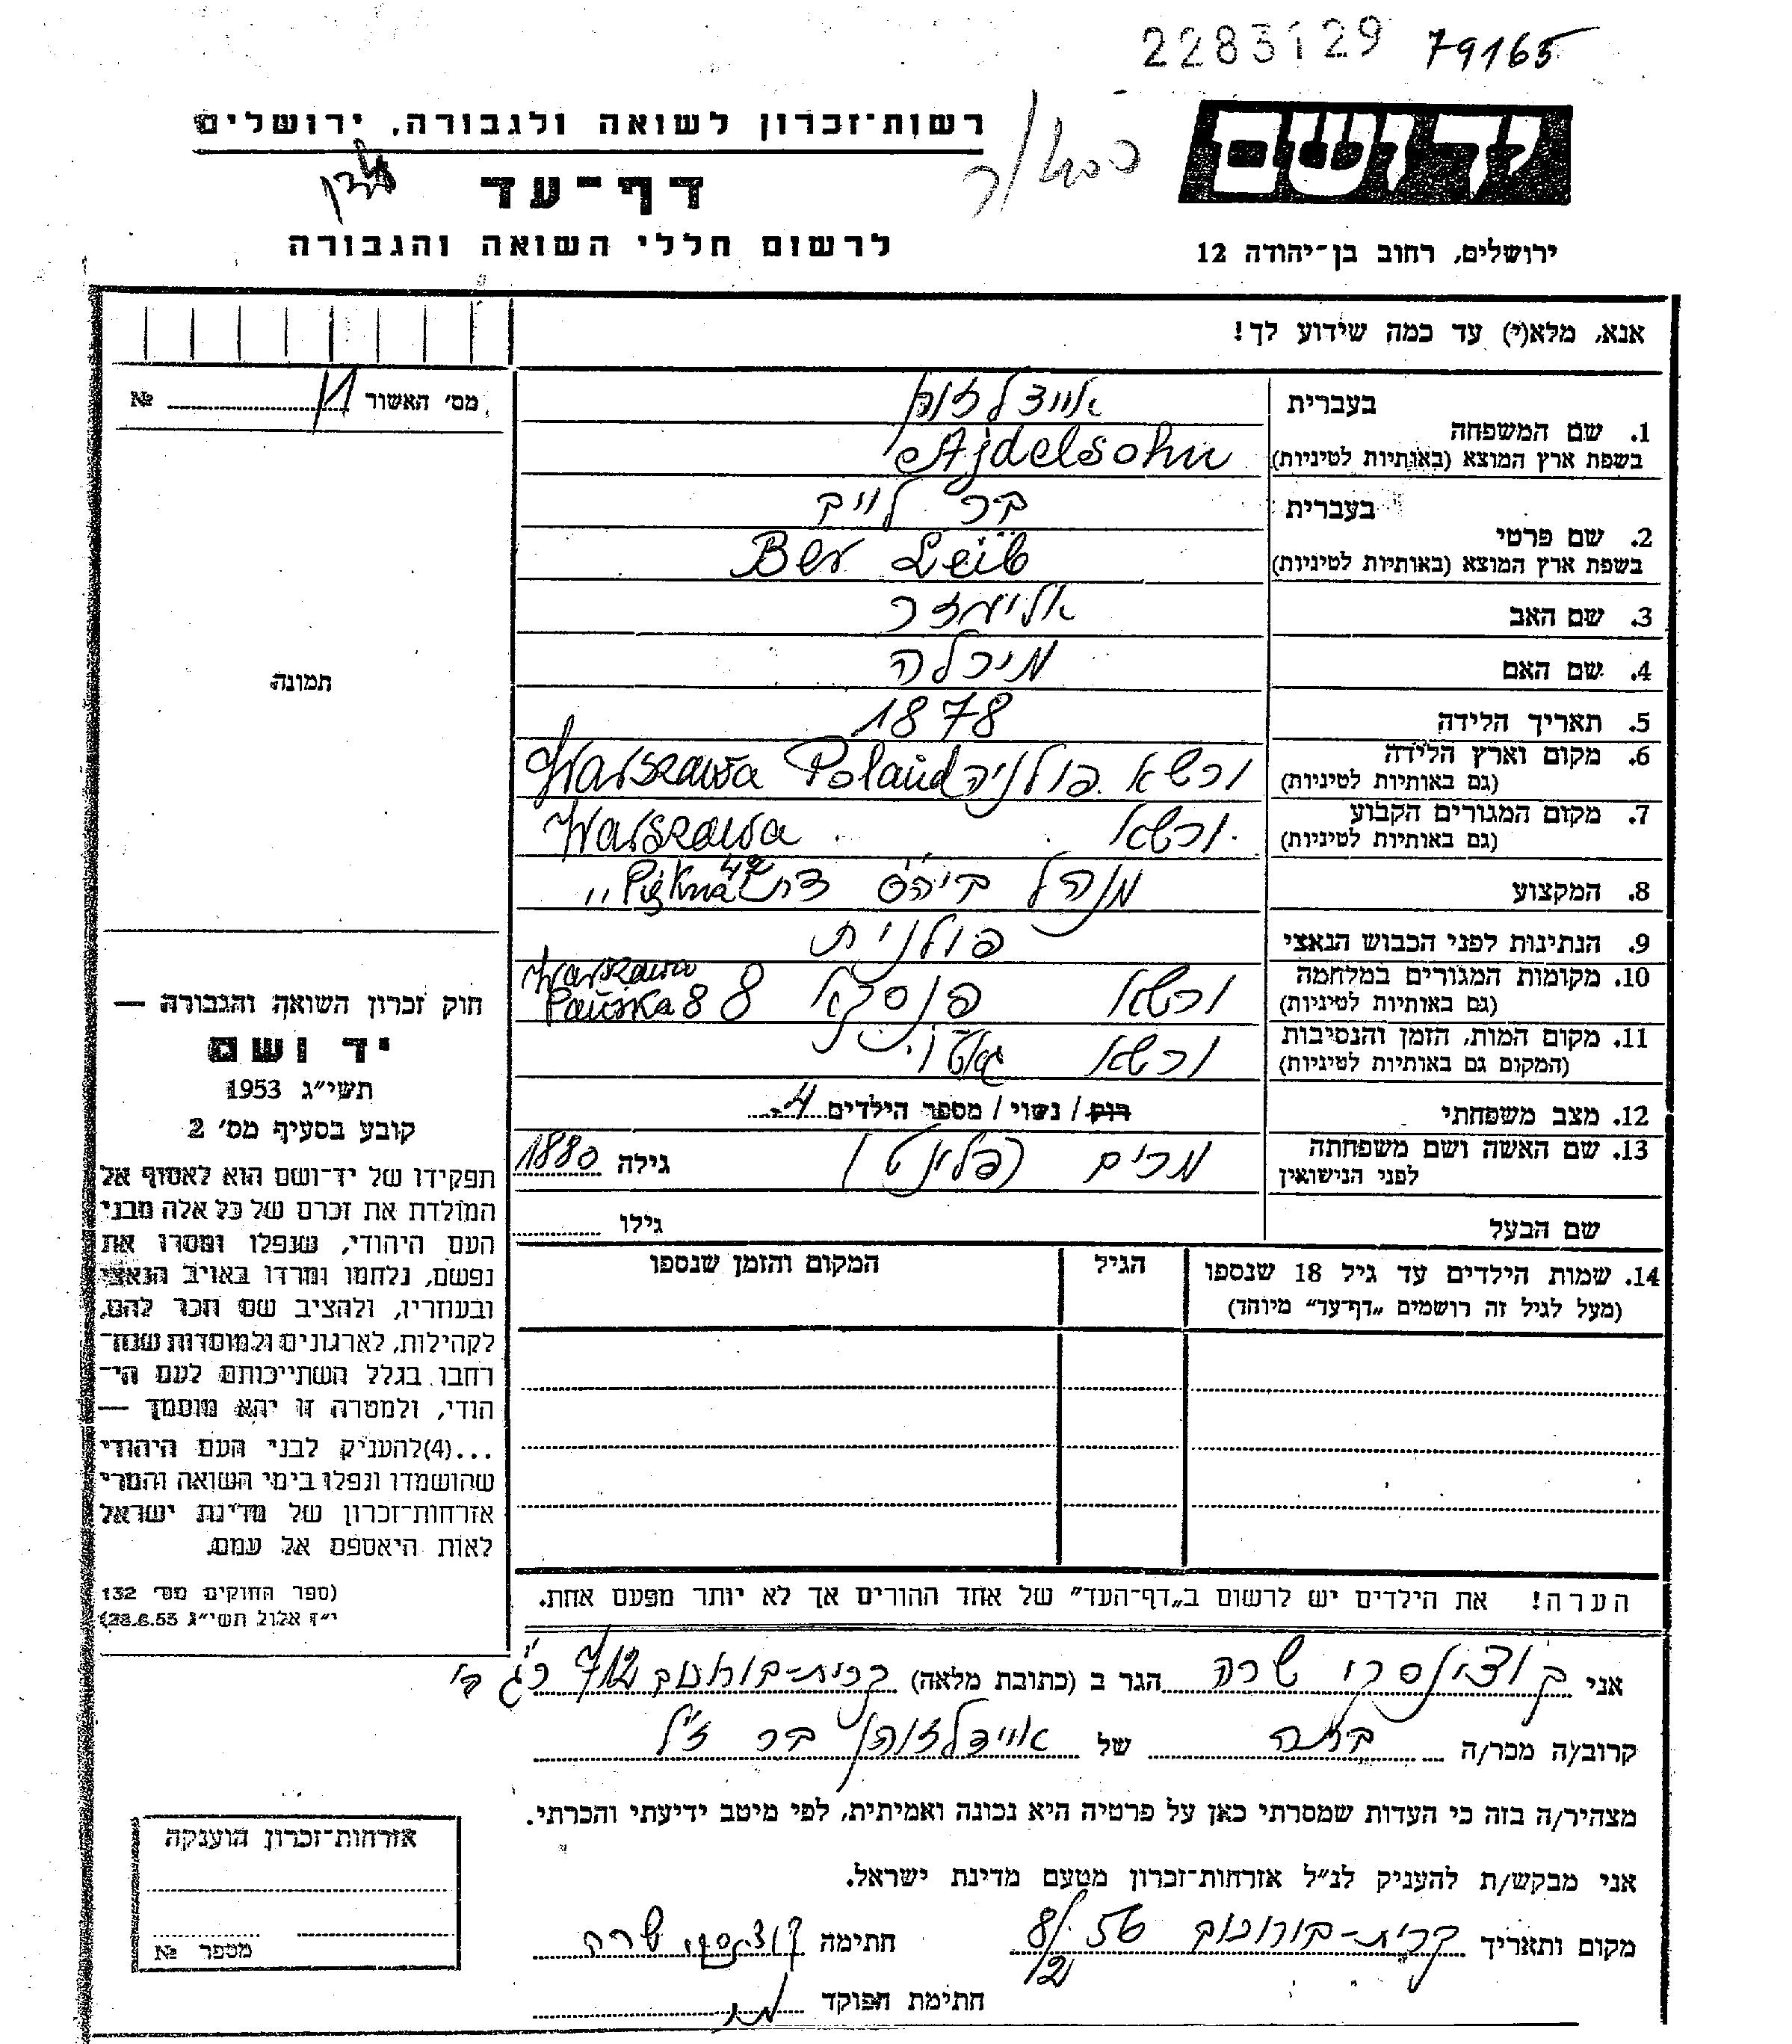 2283129 79165
יד ושם
ירושלים, רחוב בן־יהודה 12
רשות־זכרון לשואה ולגבורה, ירושלים
דף־עד
לרשום חללי השואה והגבורה
אנא, מלא(י) עד כמה שידוע לך!
מס׳ האשור №
תמונה
1. שם המשפחה
בעברית
בשפת ארץ המוצא (באותיות לטיניות) Ajdelsohn
2. שם פרטי
בעברית בר לייב
בשפת ארץ המוצא (באותיות לטיניות) Ber Leib
3. שם האב אליעזר
4. שם האם מיכלה
5. תאריך הלידה 1878
6. מקום וארץ הלידה (גם באותיות לטיניות) ורשא פולניה Warszawa Poland
7. מקום המגורים הקבוע (גם באותיות לטיניות) ורשא Warszawa
8. המקצוע מנהל ביה״ס דת Piękna
9. הנתינות לפני הכבוש הנאצי פולנית
10. מקומות המגורים במלחמה (גם באותיות לטיניות) ורשא פנסקא 8 Warszawa Pańska 88
11. מקום המות, הזמן והנסיבות (המקום גם באותיות לטיניות) ורשא גאטו
12. מצב משפחתי רוק / נשוי / מספר הילדים 4
13. שם האשה ושם משפחתה לפני הנישואין מרים גילה 1880
שם הבעל גילו
14. שמות הילדים עד גיל 18 שנספו (מעל לגיל זה רושמים „דף־עד״ מיוחד)
הגיל
המקום והזמן שנספו
הערה! את הילדים יש לרשום ב„דף־העד״ של אחד ההורים אך לא יותר מפעם אחת.
חוק זכרון השואה והגבורה —
יד ושם
תשי״ג 1953
קובע בסעיף מס׳ 2
תפקידו של יד־ושם הוא לאסוף אל
המולדת את זכרם של כל אלה מבני
העם היהודי, שנפלו ומסרו את
נפשם, נלחמו ומרדו באויב הנאצי
ובעוזריו, ולהציב שם וזכר להם,
לקהילות, לארגונים ולמוסדות שנח־
רחבו בגלל השתייכותם לעם הי־
הודי, ולמטרה זו יהא מוסמך —
...(4)להעניק לבני העם היהודי
שהושמדו ונפלו בימי השואה והמרי
אזרחות־זכרון של מדינת ישראל
לאות היאספם אל עמם.
(ספר החוקים מס׳ 132
י״ז אלול תשי״ג 28.8.53)
אני שרה הגר ב (כתובת מלאה) קרית-בורוכוב
קרוב/ה מכר/ה בתה של איידלזוהן בר ז״ל
מצהיר/ה בזה כי העדות שמסרתי כאן על פרטיה היא נכונה ואמיתית, לפי מיטב ידיעתי והכרתי.
אני מבקש/ת להעניק לנ״ל אזרחות־זכרון מטעם מדינת ישראל.
מקום ותאריך קרית-בורוכוב 56 חתימה שרה
חתימת הפוקד
אזרחות־זכרון הוענקה
מספר №